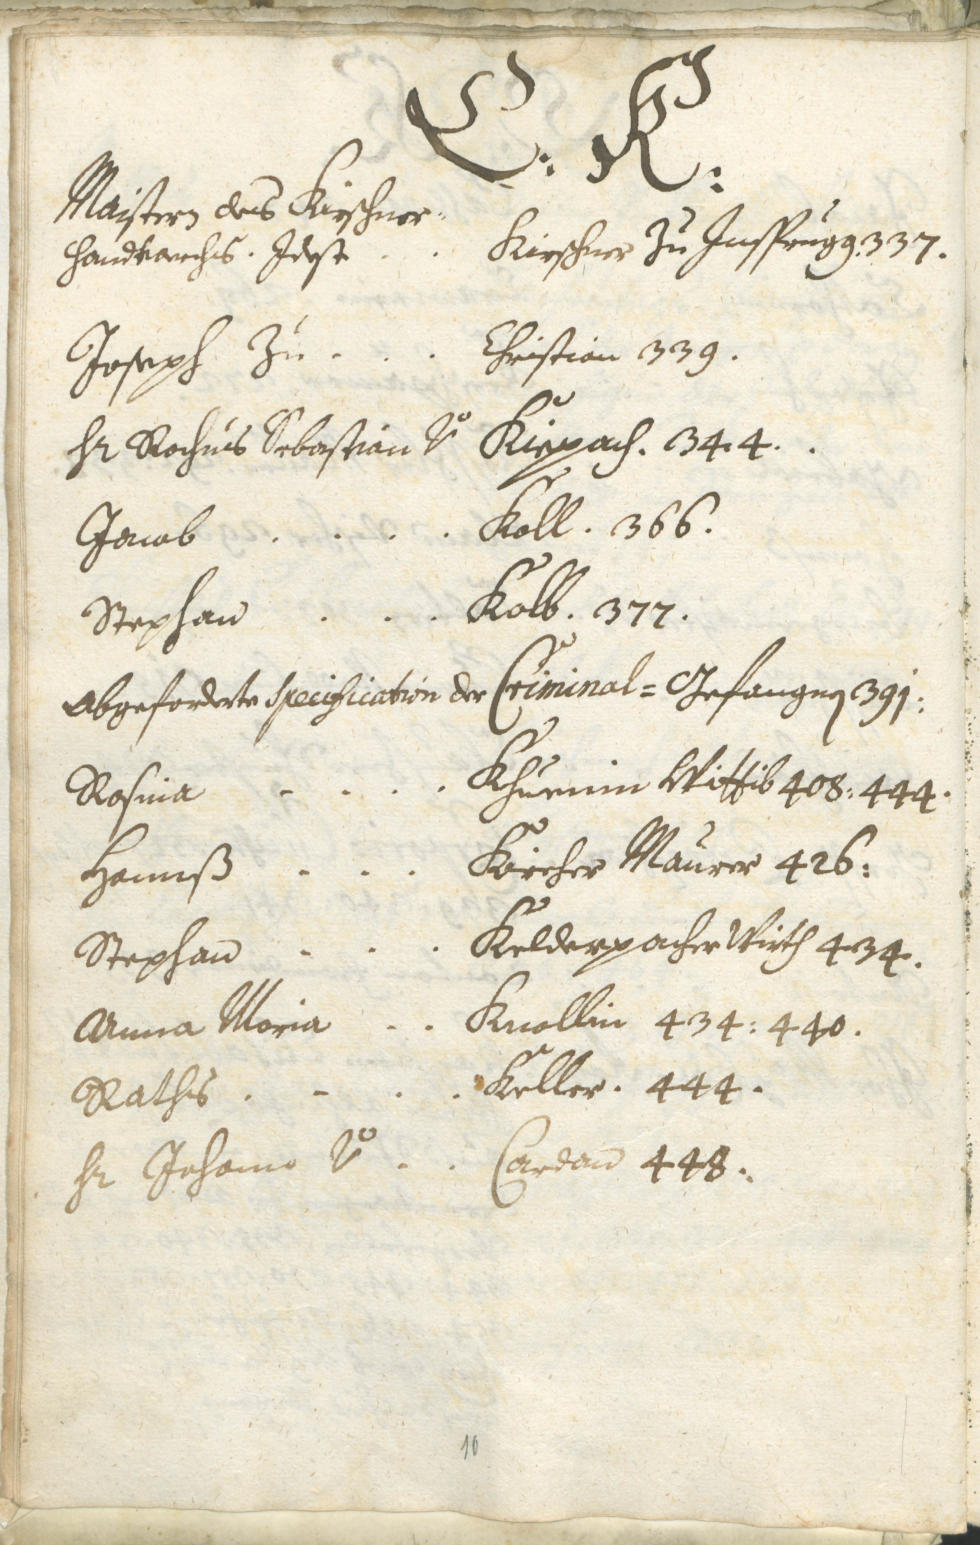 C: K:
Maistern des Kirschner-
handtwerchs. Idest . . Kirschner Zu Insprugg. 337.
Joseph Zu . . . Christian 339.
Hr Rochus Sebastian V° Kirpach. 344. .
Jacob . . . . Koll. 366.
Stephan . . . Kolb. 377.
Abgeforderte Specification der Criminal= Gefangnen 391:
Rosina - . . . Khuenin Wittib 408: 444.
Hannß - . . . Kircher Maurer 426:
Stephan - . . Kelderpacher Wirth 434.
Anna Maria . . Knollin 434: 440.
Raths . - . . Keller. 444.
Hr Johann V° . . Cardan 448.
10